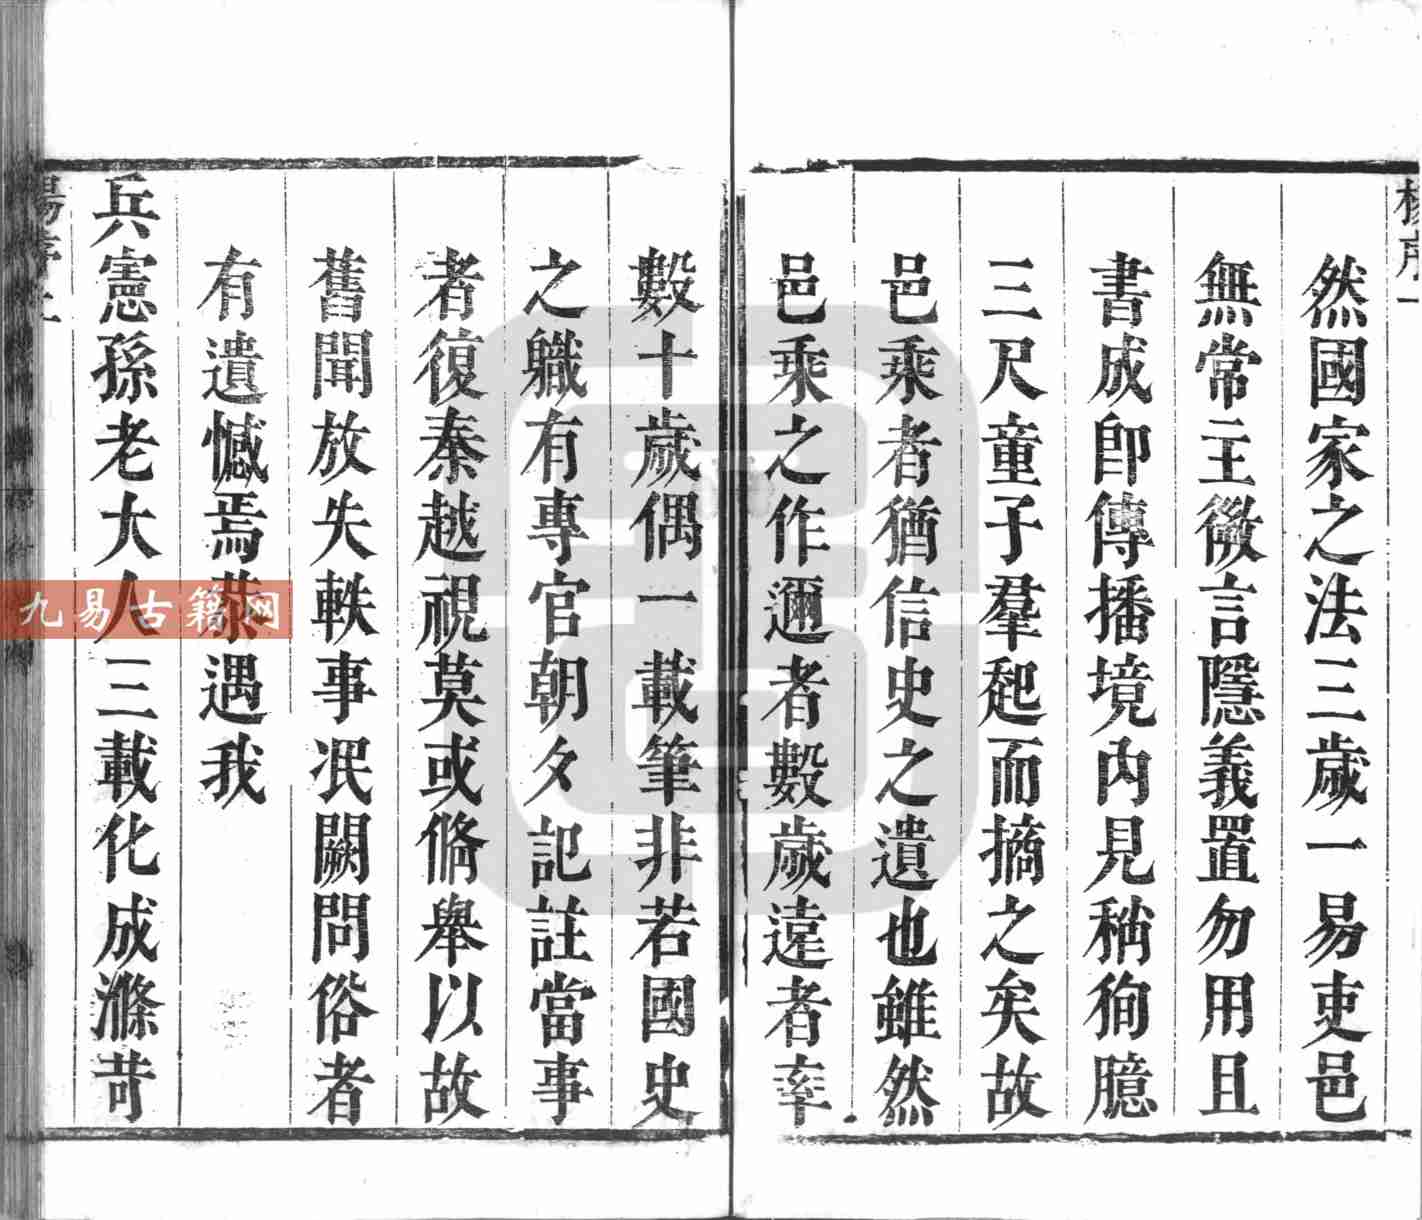 然國家之法三歲一易吏邑
無常主微言隱義置勿用且
書成卽傳播境內見稱徇臆
三尺童子羣起而摘之矣故
邑乘者猶信史之遺也雖然
邑乘之作邇者數歲遠者率
數十歲偶一載筆非若國史
之職有專官朝夕記註當事
者復秦越視莫或脩舉以故
舊聞放失軼事泯闕問俗者
有遺憾焉恭遇我
兵憲孫老大人三載化成滌苛
九易古籍网